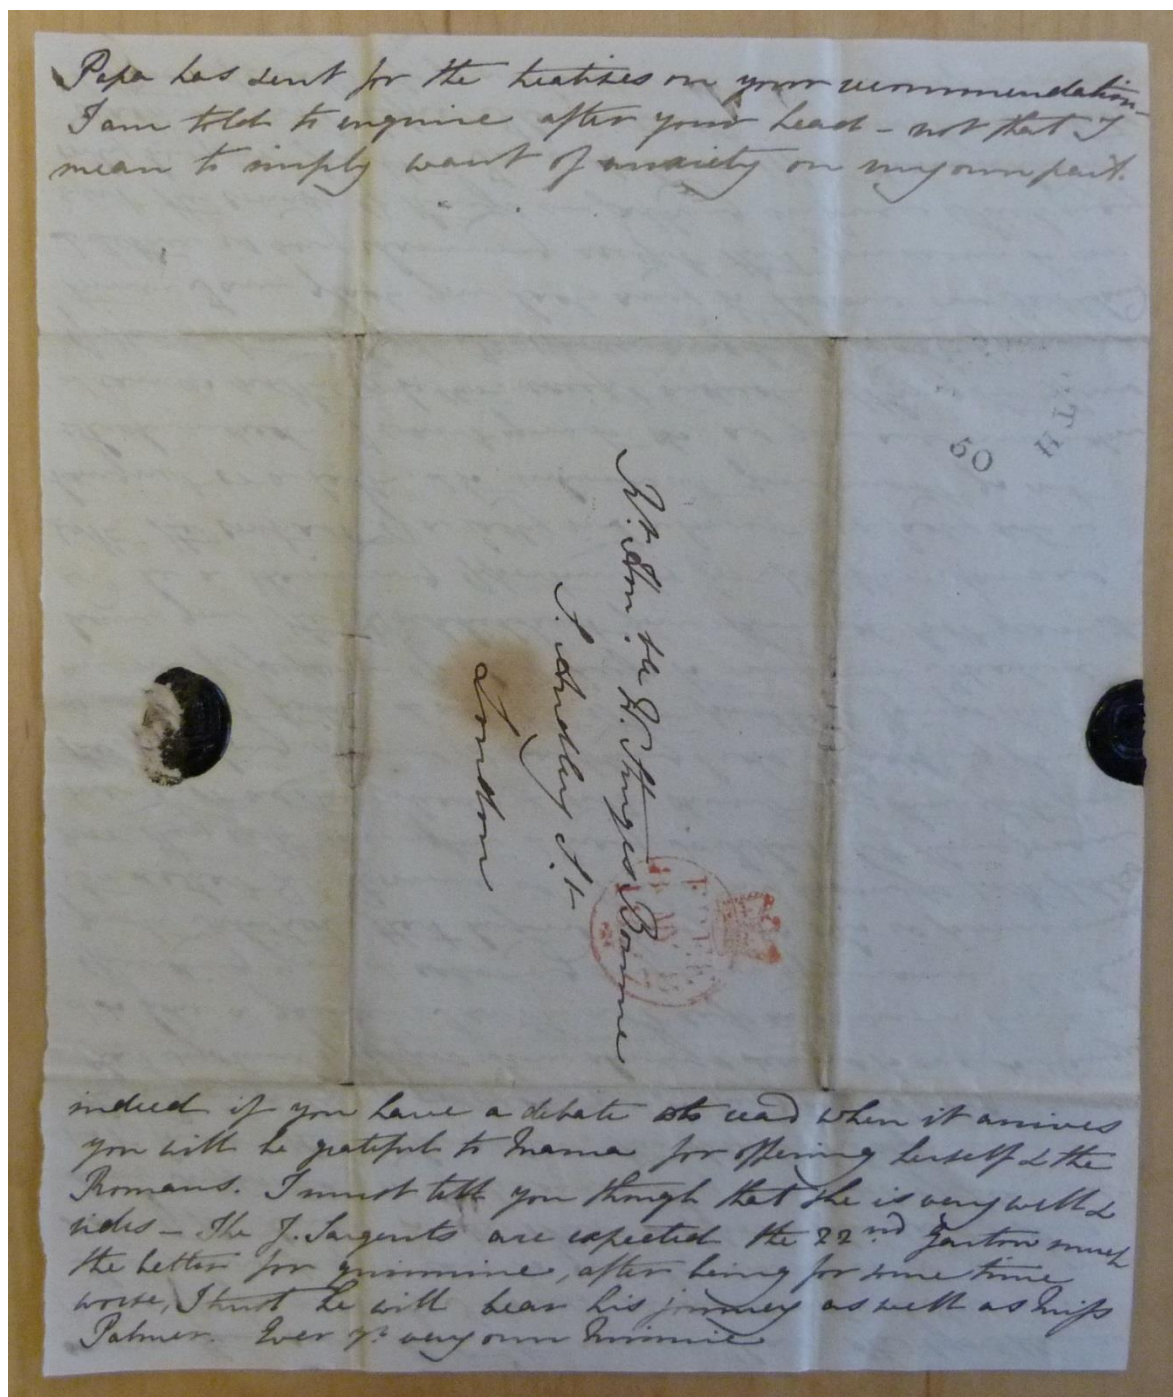 Papa has sent for the treatises on your recommendation –
I am told to enquire after your head – not that I
mean to imply want of anxiety on my own part.
50
TH
Rt. Hon. ble W. Sturges Bourne
S. Audley St.
London
indeed if you have a debate to read when it arrives
you will be grateful to Mama for offering herself & the
Romans. I must tell you though that she is very well &
rides – The J. Sargents are expected the 22nd Garton much
the better for quinine, after being for some time
worse, I trust he will bear his journey as well as Miss
Palmer. Ever yr. very own Minnie